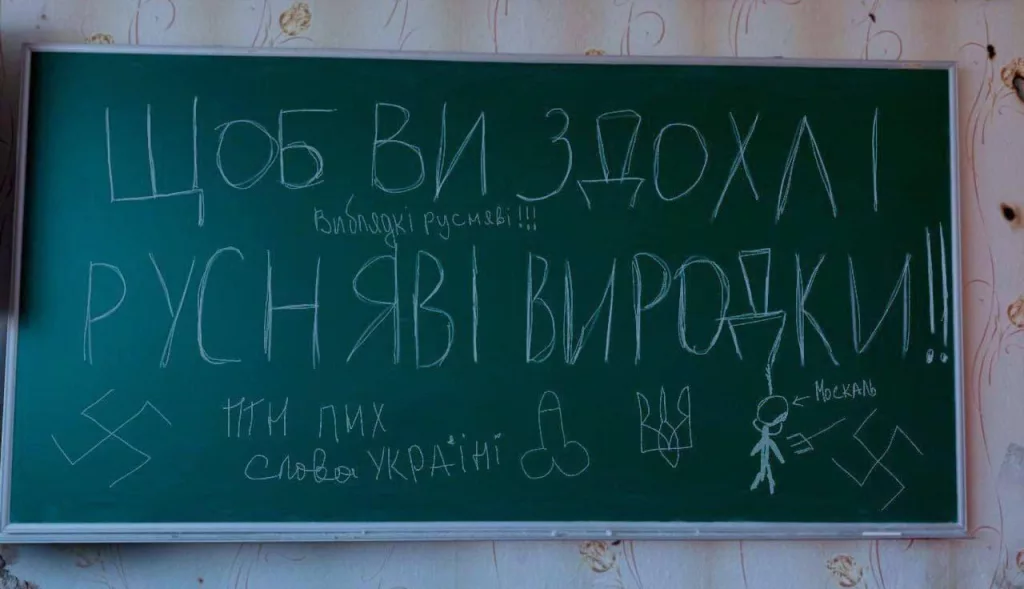 ЩОБ ВИ ЗДОХЛІ
Виблядкі русняві!!!
РУСНЯВІ ВИРОДКИ!!
← МОСКАЛЬ
ПТН ПИХ
слава УКРАЇНІ